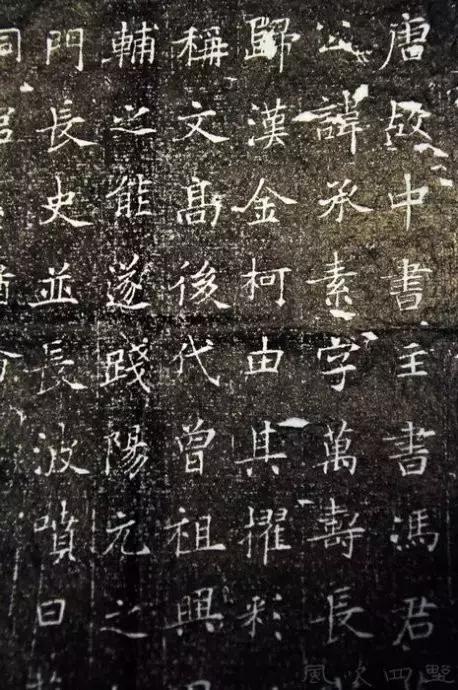 唐故中書主書馮君
公諱承素字萬壽長
歸漢金柯由其擢彩
稱文髙後代曾祖興
輔之能遂踐陽元之
門長史並長波噴日
風吹四